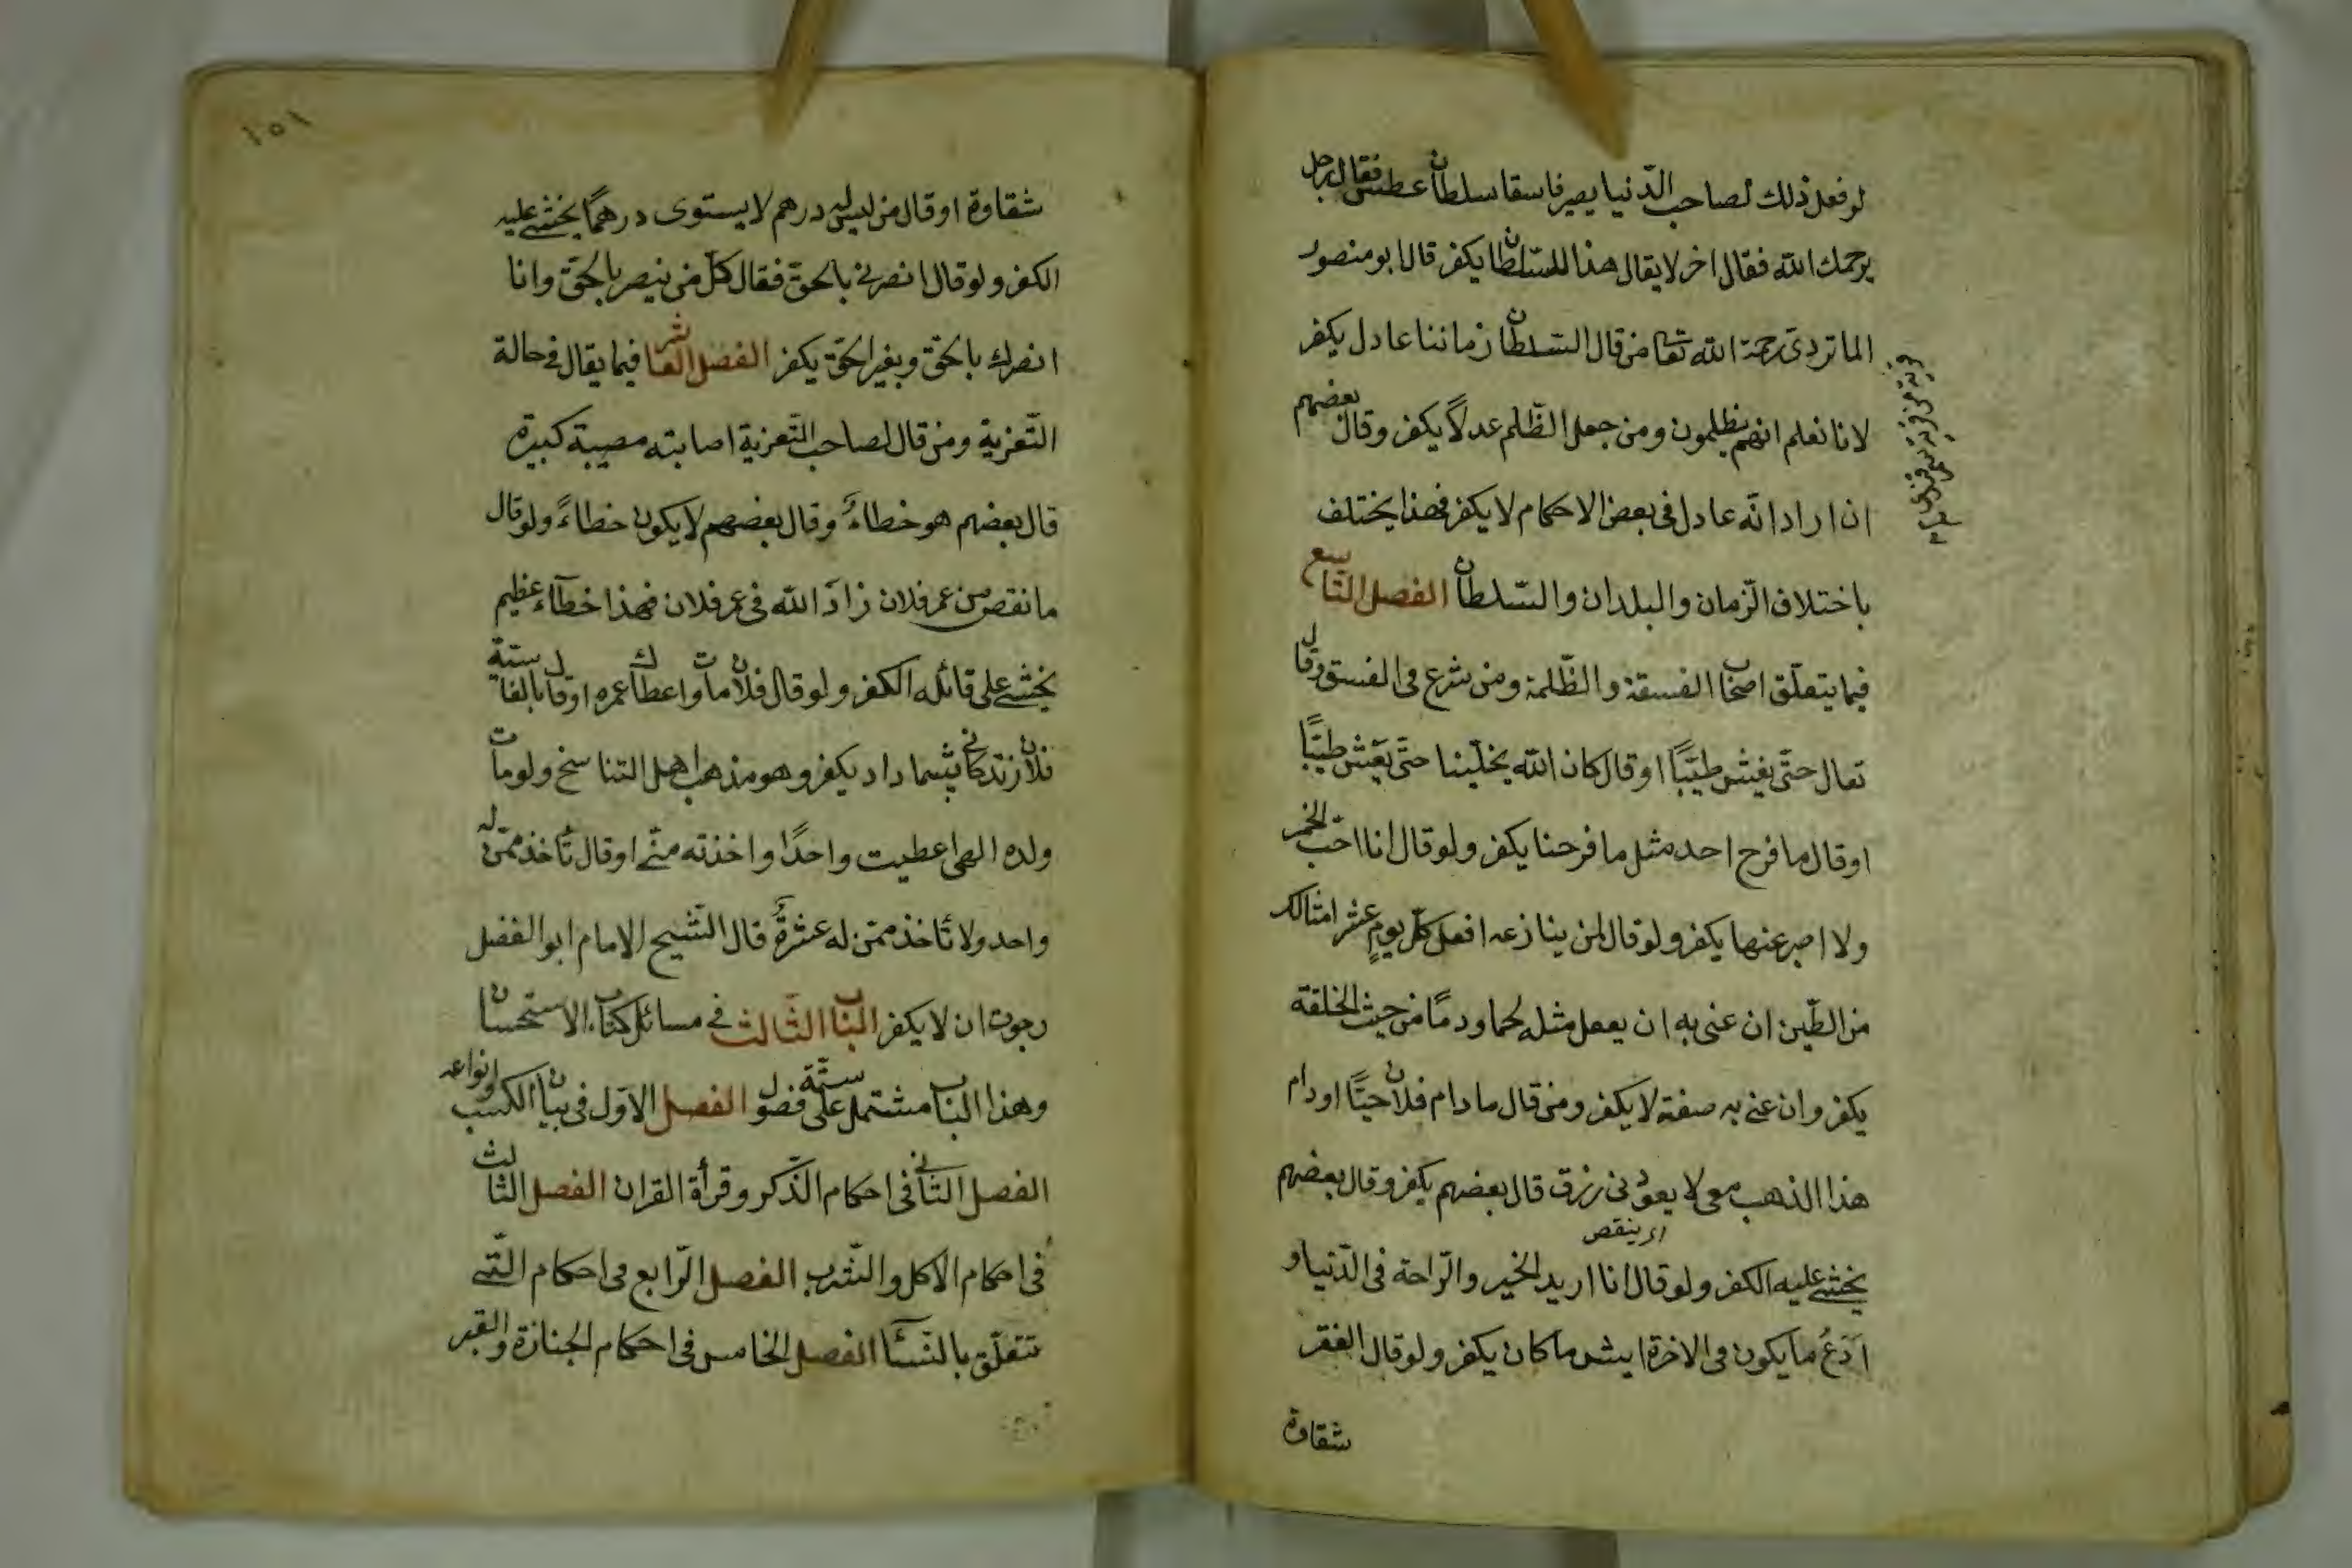 لو فعل ذلك لصاحب الدّنيا يصير فاسقا سلطان عطس فقال رجل
يرحمك الله فقال اخر لا يقال هذا للسّلطان يكفر قال ابو منصور
الماتردى رحمة الله تعا من قال السّلطان زماننا عادل يكفر
لانا نعلم انهم يظلمون ومن جعل الظّلم عدلاً يكفر وقال بعضهم
ان اراد انّه عادل فى بعض الاحكام لا يكفر فهذا يختلف
باختلاف الزّمان والبلدان والسّلطان الفصل التاسع
فيما يتعلّق اصحاب الفسقة والظّلمة ومن شرع فى الفسق وقال
تعال حتّى يعيش طيّبًا او قال كان الله يخلّينا حتّى يعيش طيّبًا
او قال ما فرح احد مثل ما فرحنا يكفر ولو قال انا احبّ الخمر
ولا اصبر عنها يكفر ولو قال لمن ينازعه افعل كلّ يومٍ عشر امثالك
من الطّين ان عنى به ان يفعل مثله لحما ودمًا من حيث الخلقة
يكفر وان عنى به صفته لا يكفر ومن قال ما دام فلان حيًّا او دام
هذا الذهب معى لا يعود نى رزق قال بعضهم يكفر وقال بعضهم
اى ينقص
يخشى عليه الكفر ولو قال انا اريد الخير والرّاحة فى الدّنيا و
اَدَعُ ما يكون فى الاخرة ايش ما كان يكفر ولو قال الفقر
شقاوة
١٥١
شقاوة او قال من ليس له درهم لا يستوى درهمًا يخشى عليه
الكفر ولو قال انصرنى بالحقّ فقال كلّ من ينصر بالحقّ وانا
انصرك بالحقّ وبغير الحقّ يكفر الفصل العاشر فيما يقال فى حالة
التّعزية ومن قال لصاحب التّعزية اصابته مصيبة كبيرة
قال بعضهم هو خطاءٌ وقال بعضهم لا يكون خطاءً ولو قال
ما نقص من عمر فلان زادَ الله فى عمر فلان فهذا خطآء عظيم
يخشى على قائله الكفر ولو قال فلان مات واعطاك عمره او قال بالفا ستة
فلان زندكانى بشما داد يكفر وهو مذهب اهل التناسخ ولو مات
ولده الهى اعطيت واحدًا واخذته منّى او قال تأخذ ممّن له
واحد ولا تأخذ ممّن له عشرةٌ قال الشّيخ الامام ابو الفضل
رجوت ان لا يكفر الباب الثّالث فى مسائل كتاب الاستحسان
وهذا الباب مشتمل على ستّة فصول الفصل الاوّل فى بيان الكسب وانواعه
الفصل الثّانى فى احكام الذّكر وقرأة القران الفصل الثّالث
فى احكام الاكل والشّرب الفصل الرّابع فى احكام الّتى
تتعلّق بالنّسآء الفصل الخامس فى احكام الجنازة والقبر